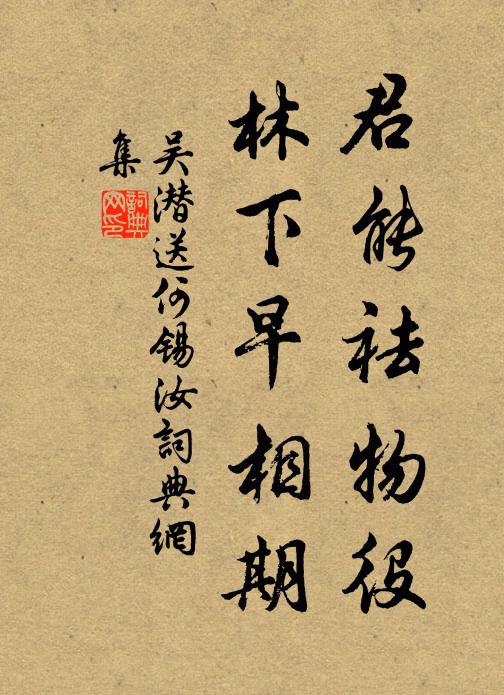 君能祛物役
林下早相期
吴潜送何锡汝詞典網
集
詞典网印